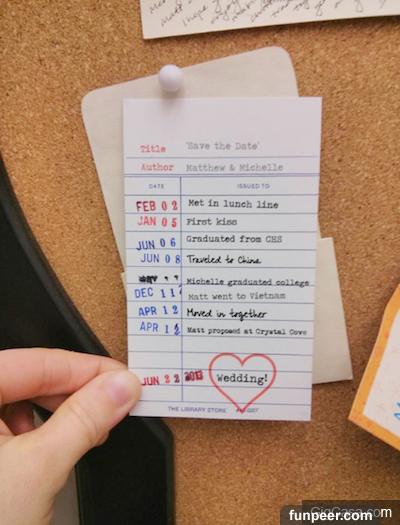 Title 'Save the Date'
Author Matthew & Michelle
DATE ISSUED TO
FEB 02 Met in lunch line
JAN 05 First kiss
JUN 06 Graduated from CHS
JUN 08 Traveled to China
Michelle graduated college
DEC 11 Matt went to Vietnam
APR 12 Moved in together
APR Matt proposed at Crystal Cove
JUN 22 2013 Wedding!
THE LIBRARY STORE
funpeer.com